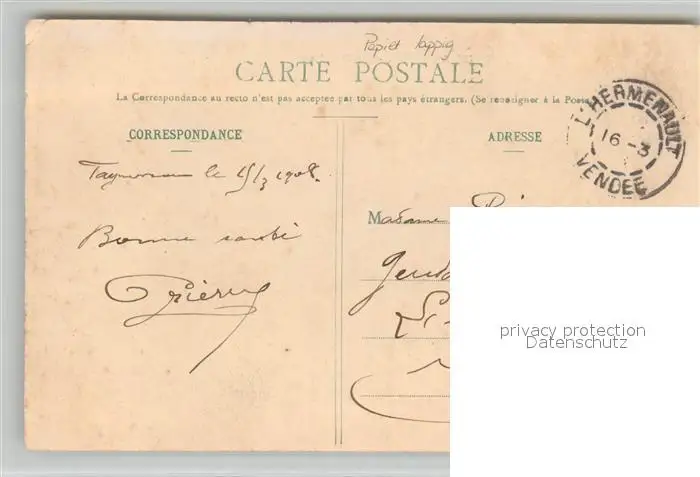 Papier lappig
CARTE POSTALE
La Correspondance au recto n'est pas acceptée par tous les pays étrangers. (Se renseigner à la Poste
CORRESPONDANCE
ADRESSE
L'HERMENAULT
16 -3
VENDEE
le 15/3 1908.
Madame
Bonne santé
privacy protection
Datenschutz